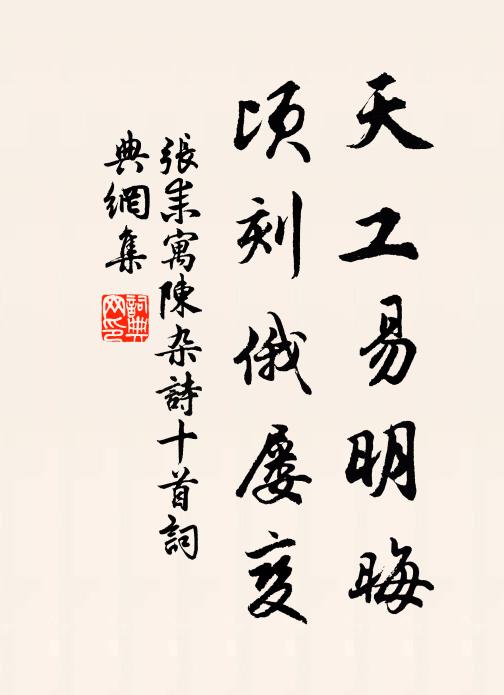 天工易明晦
顷刻俄屡变
張耒寓陳杂詩十首詞
典網集
詞典网印